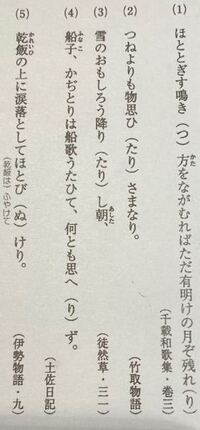 (1) ほととぎす鳴き(つ)方をながむればただ有明けの月ぞ残れ(り)
かた
(千載和歌集・巻三)
(2) つねよりも物思ひ(たり)さまなり。
(竹取物語)
(3) 雪のおもしろう降り(たり)し朝、
あした
(徒然草・三一)
(4) 船子、かぢとりは船歌うたひて、何とも思へ(り)ず。
ふなこ
(土佐日記)
(5) 乾飯の上に涙落としてほとび(ぬ)けり。
かれいひ
(乾飯は)ふやけて
(伊勢物語・九)